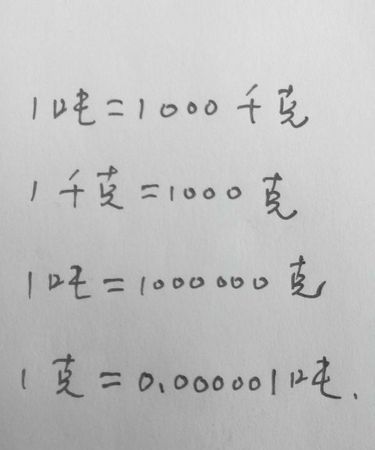 1吨=1000千克
1千克=1000克
1吨=1000000克
1克=0.000001吨.